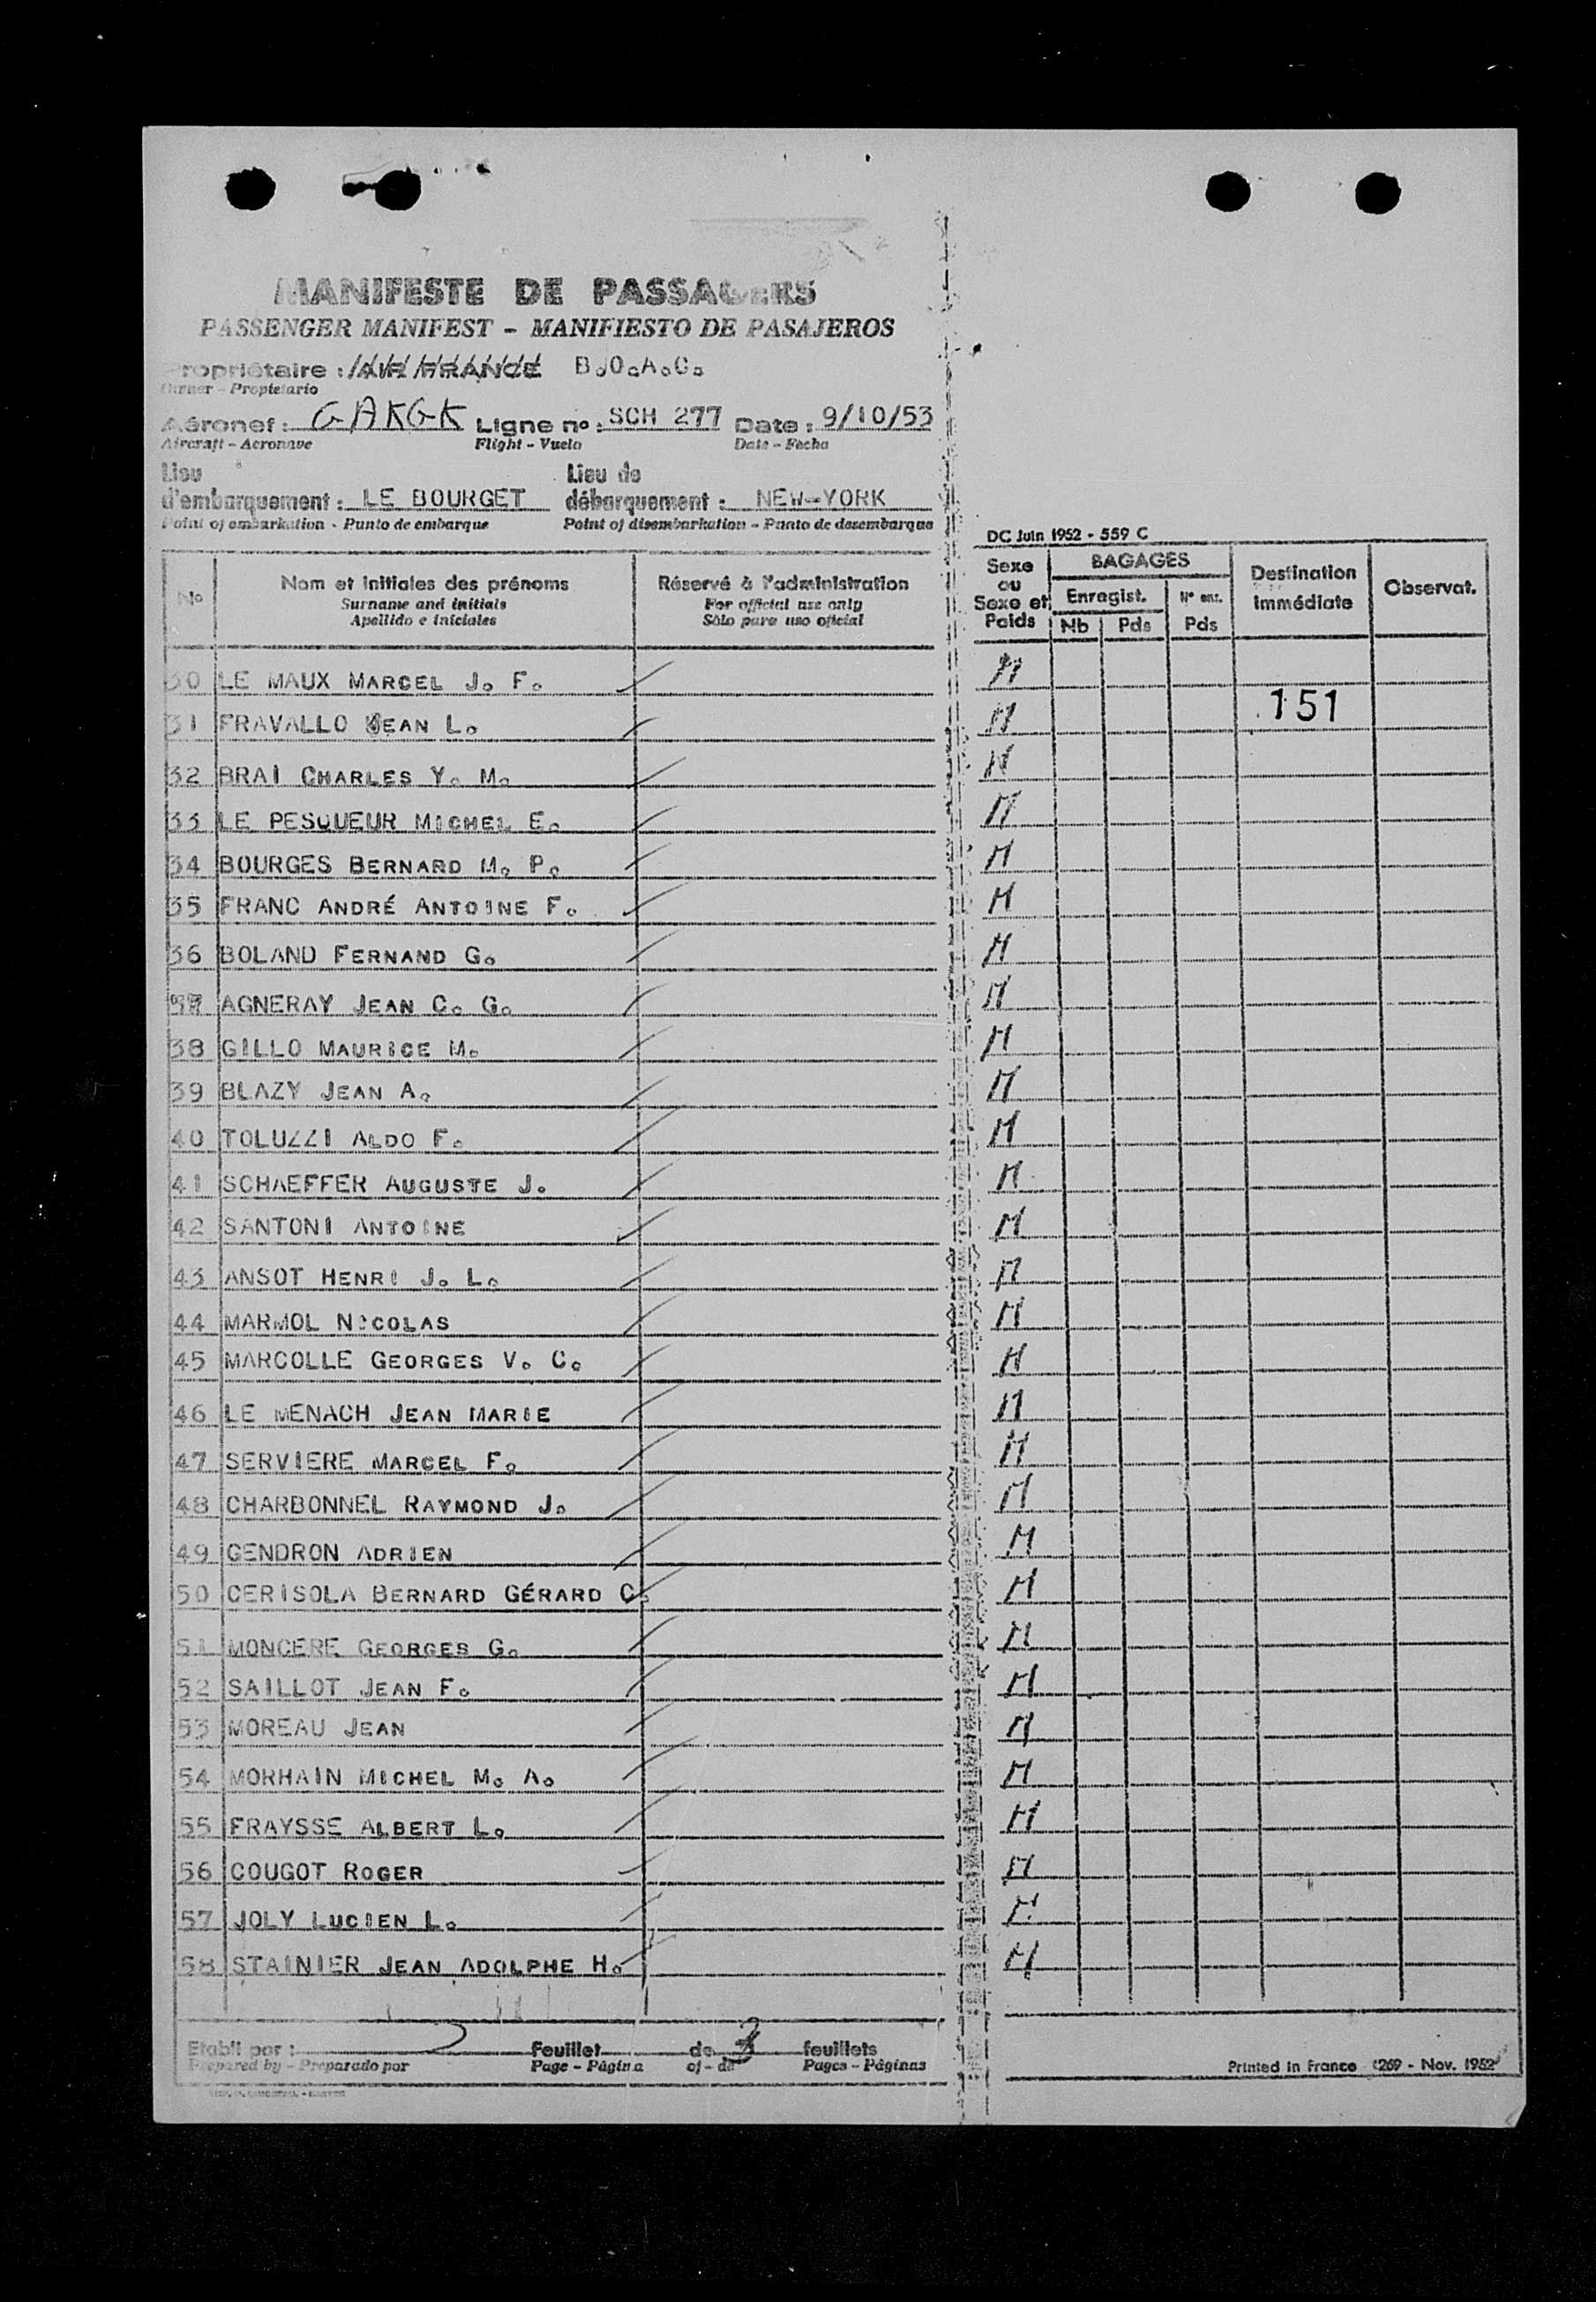 MANIFESTE DE PASSAGERS
PASSENGER MANIFEST - MANIFIESTO DE PASAJEROS
Propriétaire : AIR FRANCE B.O.A.C.
Owner - Propietario
Aéronef : GAKGK Ligne no : SCH 277 Date : 9/10/53
Aircraft - Aeronave Flight - Vuelo Date - Fecha
Lieu d'embarquement : LE BOURGET Lieu de débarquement : NEW-YORK
Point of embarkation - Punto de embarque Point of disembarkation - Punto de desembarque
DC Juin 1952 - 559 C
No Nom et initiales des prénoms Réservé à l'administration Sexe ou Sexe et Poids BAGAGES Destination immédiate Observat.
Surname and initials For official use only Enregist. Nº enr.
Apellido e iniciales Sólo para uso oficial Nb Pds Pds
30 LE MAUX MARCEL J. F. M
151
31 FRAVALLO JEAN L. M
32 BRAI CHARLES Y. M. M
33 LE PESQUEUR MICHEL E. M
34 BOURGES BERNARD M. P. M
35 FRANC ANDRÉ ANTOINE F. M
36 BOLAND FERNAND G. M
37 AGNERAY JEAN C. G. M
38 GILLO MAURICE M. M
39 BLAZY JEAN A. M
40 TOLUZZI ALDO F. M
41 SCHAEFFER AUGUSTE J. M
42 SANTONI ANTOINE M
43 ANSOT HENRI J. L. M
44 MARMOL NICOLAS M
45 MARCOLLE GEORGES V. C. M
46 LE MENACH JEAN MARIE M
47 SERVIERE MARCEL F. M
48 CHARBONNEL RAYMOND J. M
49 GENDRON ADRIEN M
50 CERISOLA BERNARD GÉRARD C. M
51 MONCERE GEORGES G. M
52 SAILLOT JEAN F. M
53 MOREAU JEAN M
54 MORHAIN MICHEL M. A. M
55 FRAYSSE ALBERT L. M
56 COUGOT ROGER M
57 JOLY LUCIEN L. M
58 STAINIER JEAN ADOLPHE H. M
Etabli par : 2 Feuillet de 3 feuillets
Prepared by - Preparado por Page - Página of - de Pages - Páginas
Printed in France 1269 - Nov. 1952